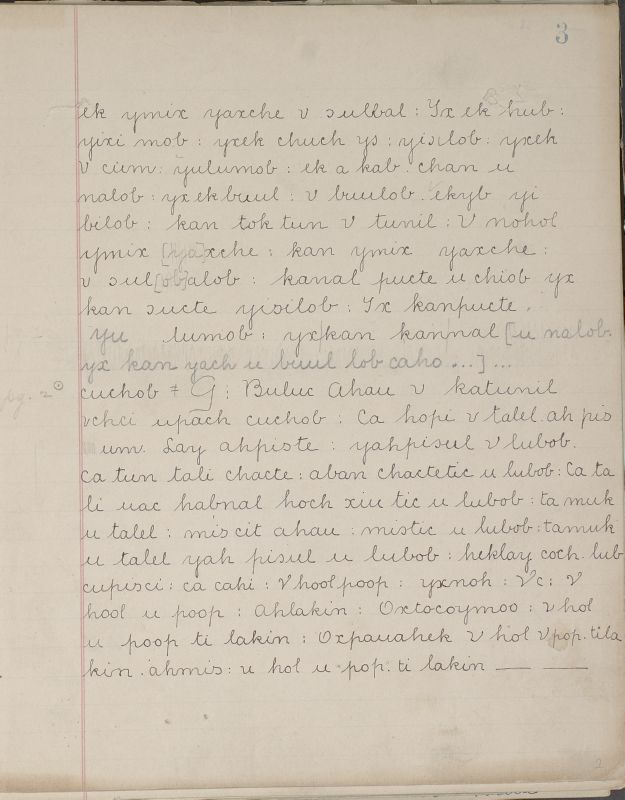 3
ek ymix yaxche v sulbal : Yx ek hub :
yixi mob : yxek chuch ys : yisilob : yxek
v cium : yulumob : ek a kab . chan u
nalob : yx ek buul : v buulob . ekyb yi
bilob : kan tok tun v tunil : V nohol
ymix [hja]xche : kan ymix yaxche :
v sul[ob]alob : kanal pucte u chiob yx
kan sucte yisilob : Yx kanpucte .
yu lumob : yx kan kannal [u nalob.
yx kan yach u buul lob caho ...] ...
pg. 2º
cuchob ‡ G : Buluc Ahau v katunil
vchci upach cuchob : Ca hopi v talel . ah pis
um . Lay ahpiste : yahpisul v lubob .
Ca tun tali chacte : aban chactetic u lubob : Ca ta
li uac habnal hoch xiu tic u lubob : ta muk
u talel : miscit ahau : mistic u lubob : tamuk
u talel yah pisul u lubob : heklay coch . lub
cupisci : ca cahi : Vhoolpoop : yxnoh : Vc : V
hool u poop : Ahlakin : Oxtocoymoo : v hol
u poop ti lakin : Oxpauahek v hol v pop . tila
kin . ahmis : u hol u pop . ti lakin — —
2